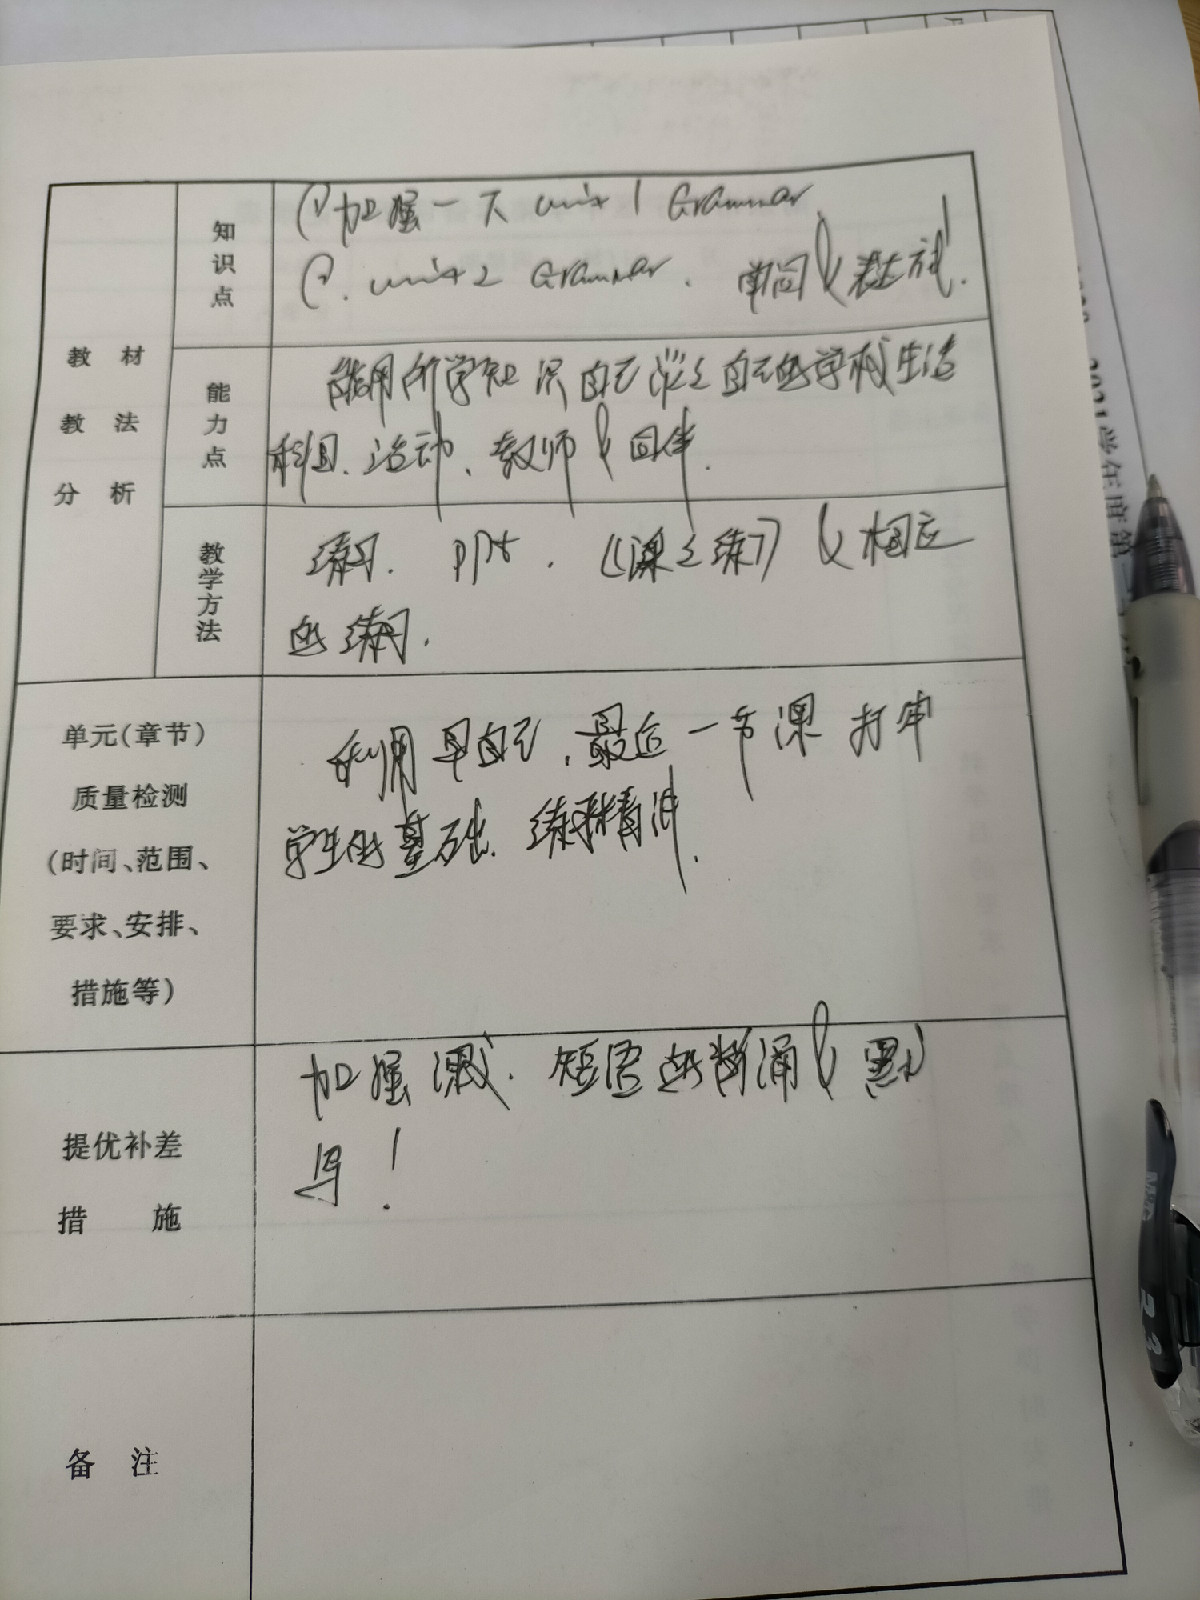 教材
教法
分析
知识点
加强一下 unit 1 Grammar
unit 2 Grammar. 单词&表达式.
能力点
能用所学知识自己谈自己的学校生活
科目、活动、教师&同伴.
教学方法
练习、ppt、《课课练》&相应
的练习.
单元(章节)
质量检测
(时间、范围、
要求、安排、
措施等)
利用早自习、最后一节课打牢
学生的基础、练习精讲.
提优补差
措施
加强课文、短语的背诵&默
写!
备注
2021学年度第一